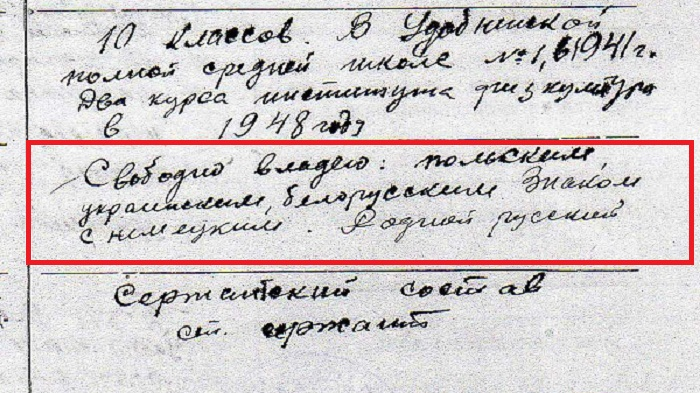 10 классов. В Удобненской
полной средней школе №1, в 1941 г.
Два курса института физкультура
в 1948 году
Свободно владею: польским,
украинским, белорусским Знаком
с немецким. Родной русский
Сержантский состав
ст. сержант